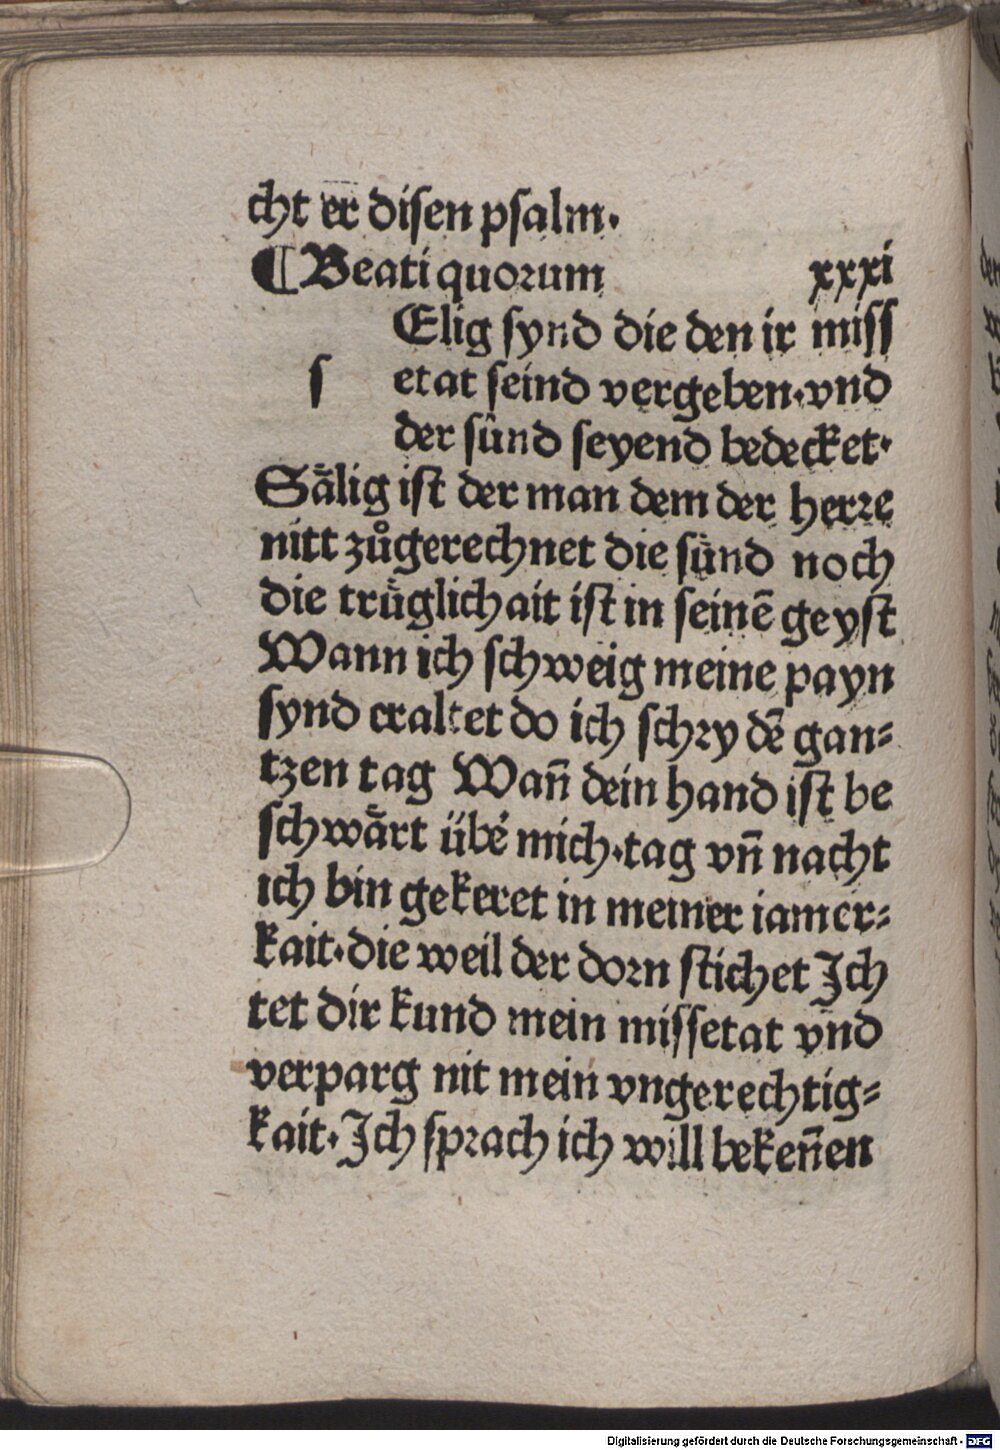 cht er disen psalm.
¶Beati quorum xxxi
Elig synd die den ir miss
s etat seind vergeben.vnd
der sünd seyend bedecket.
Sälig ist der man dem der herre
nitt zůgerechnet die sünd noch
die trüglichait ist in seinē geyst
Wann ich schweig meine payn
synd eraltet do ich schry dē gan-
tzen tag Wañ dein hand ist be
schwärt übé mich.tag vñ nacht
ich bin gekeret in meiner iamer-
kait.die weil der dorn stichet Ich
tet dir kund mein missetat vnd
verparg nit mein vngerechtig-
kait.Ich sprach ich will bekeñen
Digitalisierung gefördert durch die Deutsche Forschungsgemeinschaft - DFG